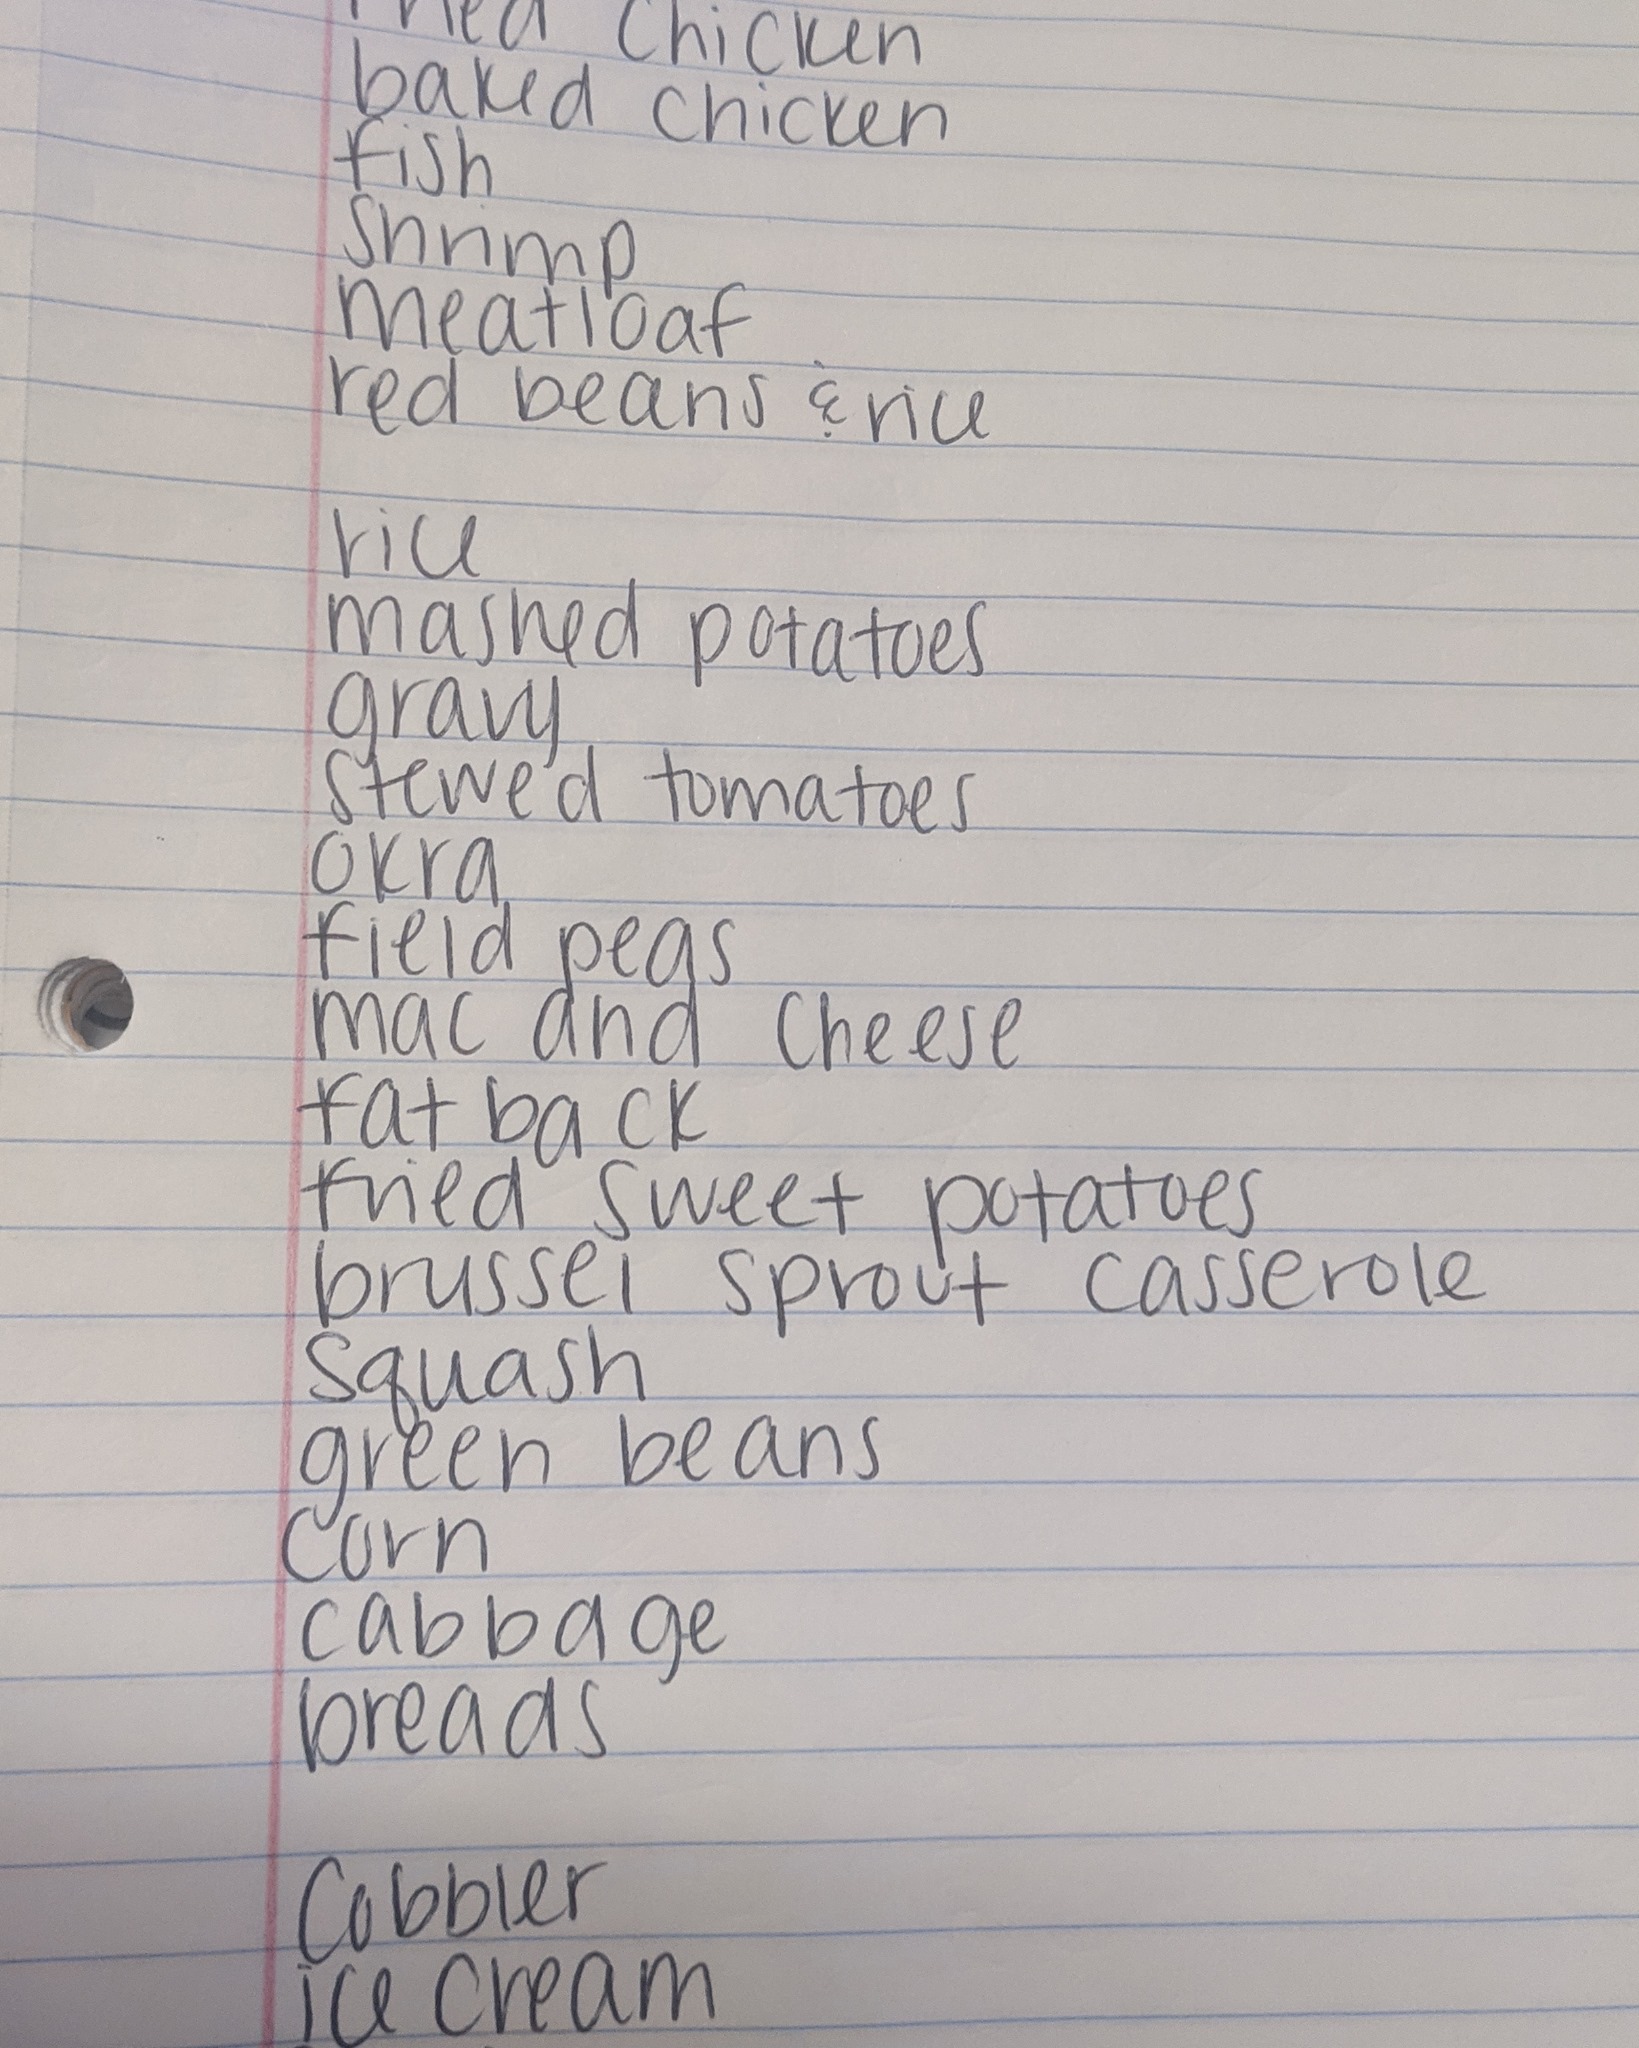 fried chicken
baked chicken
fish
shrimp
meatloaf
red beans & rice
rice
mashed potatoes
gravy
stewed tomatoes
okra
field peas
mac and cheese
fatback
fried sweet potatoes
brussel sprout casserole
squash
green beans
corn
cabbage
breads
Cobbler
ice cream